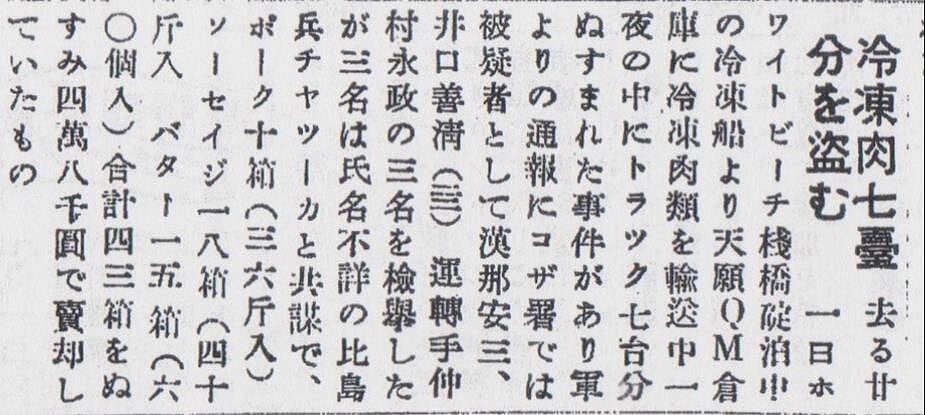 冷凍肉七臺
分を盗む
去る廿
一日ホ
ワイトビーチ棧橋碇泊中
の冷凍船より天願QM倉
庫に冷凍肉類を輸送中一
夜の中にトラツク七台分
ぬすまれた事件があり軍
よりの通報にコザ署では
被疑者として漢那安三、
井口善淸(三三)運轉手仲
村永政の三名を檢擧した
が三名は氏名不詳の比島
兵チヤツーカと共謀で、
ポーク十箱(三六斤入)
ソーセイジ一八箱(四十
斤入 バター一五箱(六
〇個入)合計四三箱をぬ
すみ四萬八千圓で賣却し
ていたもの